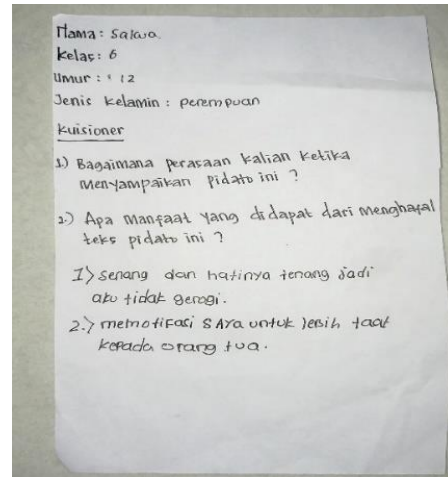 Nama: Salwa.
Kelas: 6
Umur : 12
Jenis Kelamin : perempuan
Kuisioner
1.) Bagaimana perasaan kalian ketika
Menyampaikan pidato ini ?
2.) Apa manfaat yang didapat dari menghafal
teks pidato ini ?
1) senang dan hatinya tenang jadi
aku tidak gerogi.
2.) memotifasi SAya untuk lebih taat
kepada orang tua.